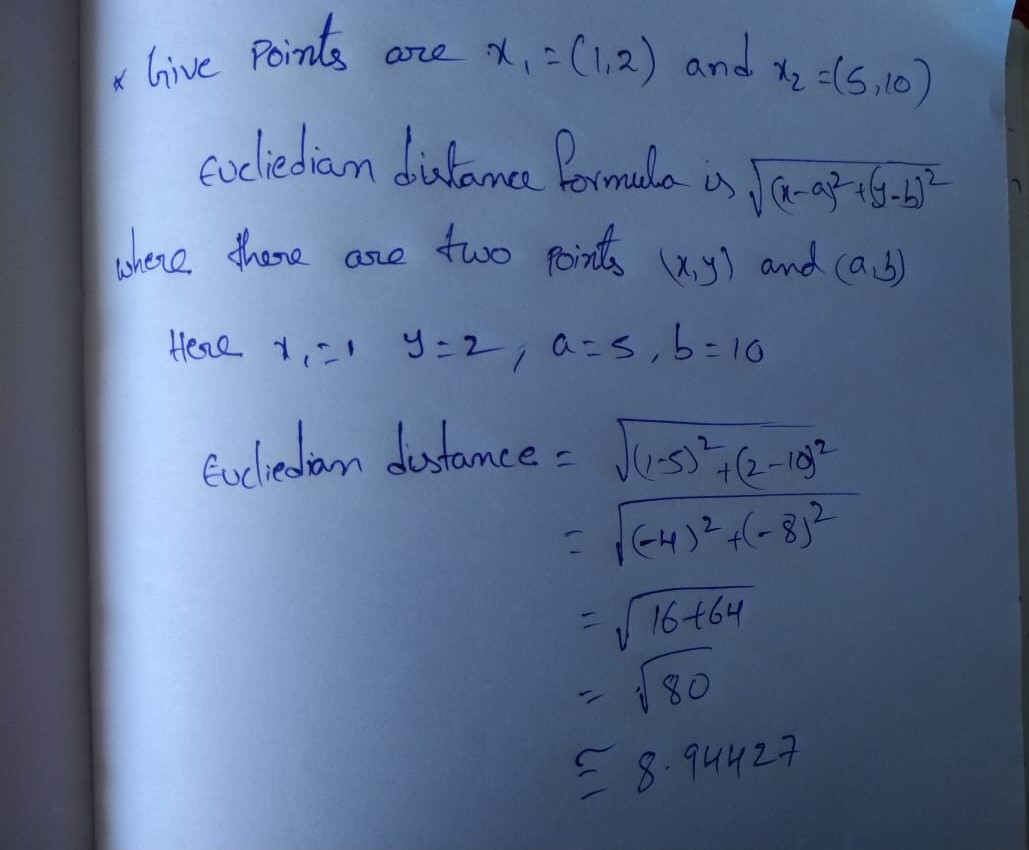 * Give Points are x₁ = (1,2) and x₂ = (5,10)
Eucliedian distance formula is √((x-a)² + (y-b)²)
where there are two points (x,y) and (a,b)
Here x₁ = 1 y = 2, a = 5, b = 10
Eucliedian distance = √((1-5)² + (2-10)²)
= √((-4)² + (-8)²)
= √(16+64)
= √80
≅ 8.94427